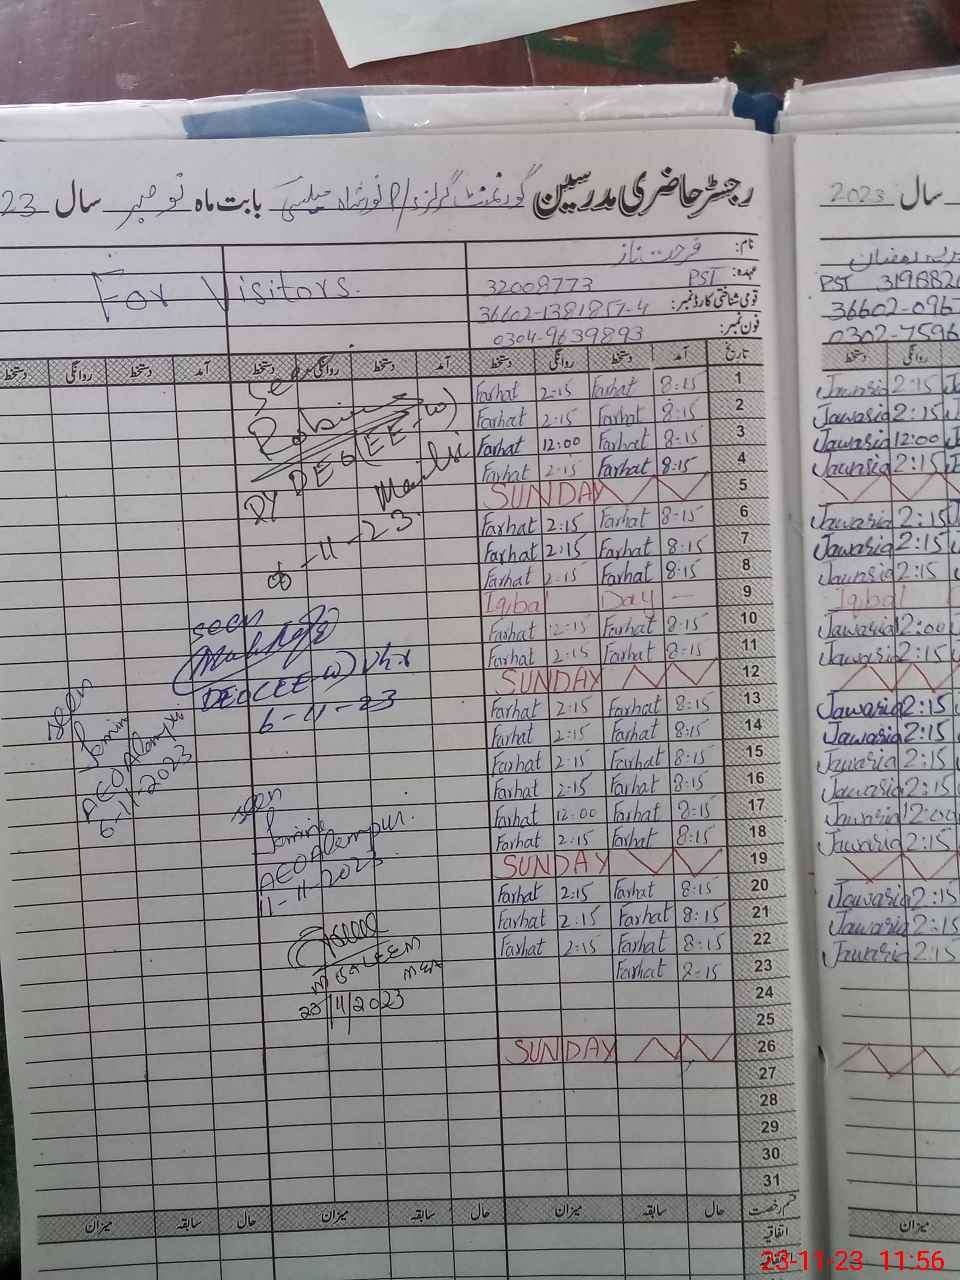 رجسٹر حاضری مدرسین گورنمنٹ گرلز بابت ماہ نومبر سال 23
نام: فرحت ناز
عہدہ: PST 32008773
قومی شناختی کارڈ نمبر: 36602-1381857-4
فون نمبر: 0304-9639893
For Visitors.
تاریخ آمد دستخط روانگی دستخط آمد دستخط روانگی دستخط آمد دستخط روانگی دستخط
1 8:15 Farhat 2:15 Farhat
2 8:15 Farhat 2:15 Farhat
3 8:15 Farhat 12:00 Farhat
4 8:15 Farhat 2:15 Farhat
5 SUNDAY
6 8:15 Farhat 2:15 Farhat
7 8:15 Farhat 2:15 Farhat
8 8:15 Farhat 2:15 Farhat
9 Iqbal Day —
10 8:15 Farhat 12:15 Farhat
11 8:15 Farhat 2:15 Farhat
12 SUNDAY
13 8:15 Farhat 2:15 Farhat
14 8:15 Farhat 2:15 Farhat
15 8:15 Farhat 2:15 Farhat
16 8:15 Farhat 2:15 Farhat
17 8:15 Farhat 12:00 Farhat
18 8:15 Farhat 2:15 Farhat
19 SUNDAY
20 8:15 Farhat 2:15 Farhat
21 8:15 Farhat 2:15 Farhat
22 8:15 Farhat 2:15 Farhat
23 8:15 Farhat
24
25
26 SUNDAY
27
28
29
30
31
قسم رخصت حال سابقہ میزان حال سابقہ میزان حال سابقہ میزان
اتفاقیہ
DY DEO (EE-W)
Mailsi
-11-23
seen
DEO(EE-W) Vhr
6-11-23
seen
AEO Alampur
6-11-2023
seen
AEO Alampur.
11-11-2023
M SALEEM
MEA
23/11/2023
سال 2023
PST 319882
36602-096
0302-7596
دستخط روانگی
Jawaria 2:15
Jawaria 2:15
Jawaria 12:00
Jawaria 2:15
Jawaria 2:15
Jawaria 2:15
Jawaria 2:15
Iqbal
Jawaria 12:00
Jawaria 2:15
Jawaria 2:15
Jawaria 2:15
Jawaria 2:15
Jawaria 2:15
Jawaria 12:00
Jawaria 2:15
Jawaria 2:15
Jawaria 2:15
Jawaria 2:15
میزان
23-11-23 11:56